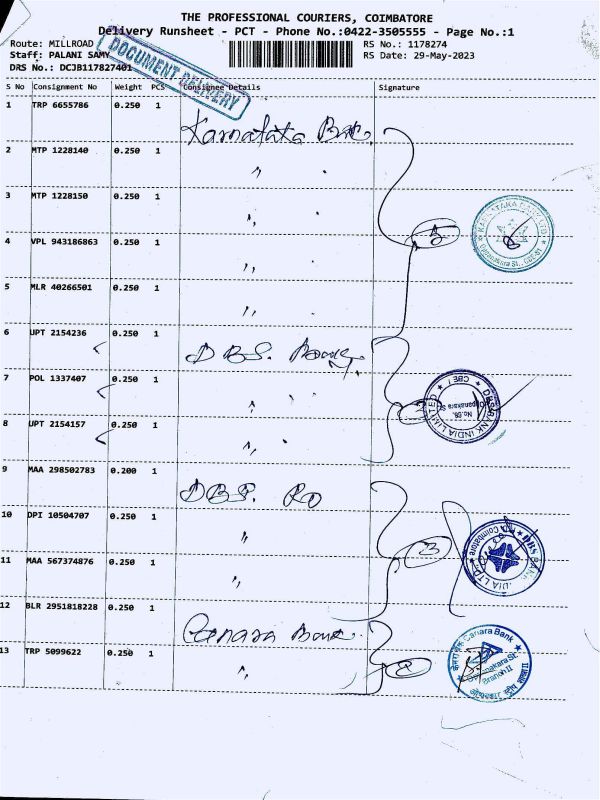 THE PROFESSIONAL COURIERS, COIMBATORE
Delivery Runsheet - PCT - Phone No.:0422-3505555 - Page No.:1
Route: MILLROAD
RS No.: 1178274
Staff: PALANI SAMY
RS Date: 29-May-2023
DRS No.: DCJB117827401
DOCUMENT DELIVERY
S No Consignment No Weight PCS Consignee Details Signature
1 TRP 6655786 0.250 1
Karnataka Bank
2 MTP 1228140 0.250 1
〃
3 MTP 1228150 0.250 1
〃
4 VPL 943186863 0.250 1
〃
5
KARNATAKA BANK LTD
5 MLR 40266501 0.250 1
〃
6 UPT 2154236 0.250 1
DBS. Bank
7 POL 1337407 0.250 1
〃
3
DBS BANK INDIA LIMITED
CBE 1
8 UPT 2154157 0.250 1
〃
9 MAA 298502783 0.200 1
DBS. RO
10 DPI 10504707 0.250 1
〃
3
DBS BANK INDIA LTD
Coimbatore
11 MAA 567374876 0.250 1
〃
12 BLR 2951818228 0.250 1
Canara Bank
13 TRP 5099622 0.250 1
〃
2
केनरा बैंक Canara Bank
Oppanakara St
Branch II